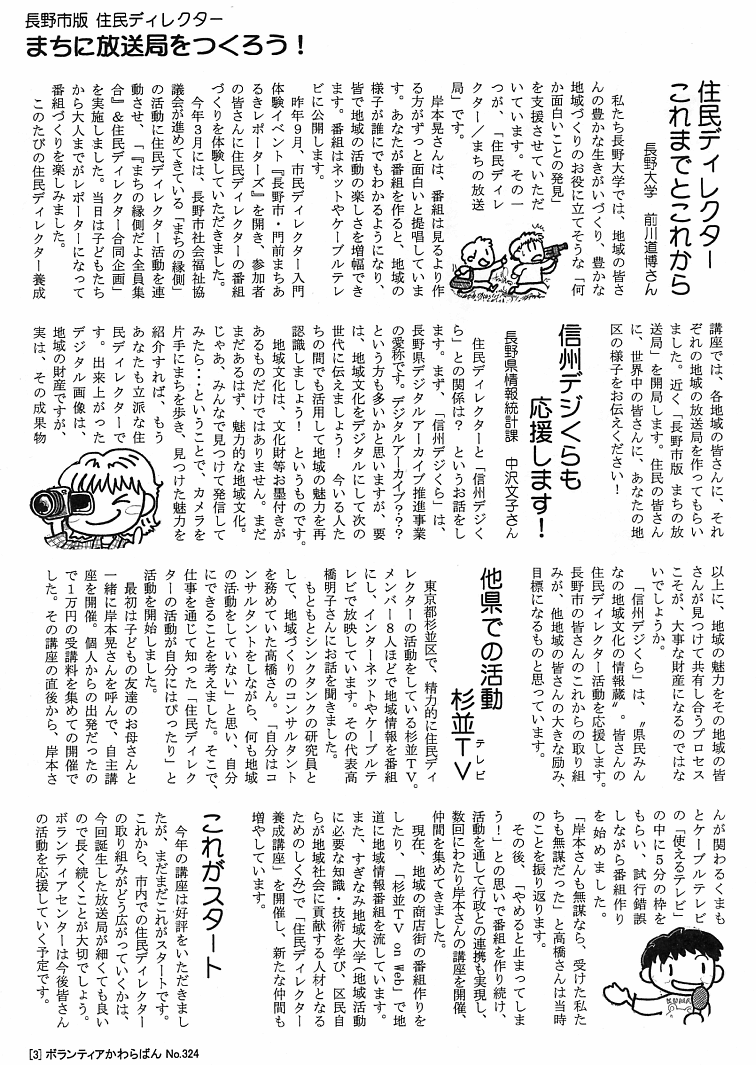 長野市版 住民ディレクター
まちに放送局をつくろう！
住民ディレクター
これまでとこれから
長野大学　前川道博さん
私たち長野大学では、地域の皆さ
んの豊かな生きがいづくり、豊かな
地域づくりのお役に立てそうな「何
か面白いことの発見」
を支援させていただ
いています。その一
つが、「住民ディレ
クター／まちの放送
局」です。
岸本晃さんは、番組は見るより作
る方がずっと面白いと提唱していま
す。あなたが番組を作ると、地域の
様子が誰にでもわかるようになり、
皆で地域の活動の楽しさを増幅でき
ます。番組はネットやケーブルテレ
ビに公開します。
昨年９月、市民ディレクター入門
体験イベント『長野市・門前まちあ
るきレポーターズ』を開き、参加者
の皆さんに住民ディレクターの番組
づくりを体験していただきました。
今年３月には、長野市社会福祉協
議会が進めてきている「まちの縁側」
の活動に住民ディレクター活動を連
動させ、「『まちの縁側だよ全員集
合』＆住民ディレクター合同企画」
を実施しました。当日は子どもたち
から大人までがレポーターになって
番組づくりを楽しみました。
このたびの住民ディレクター養成
講座では、各地域の皆さんに、それ
ぞれの地域の放送局を作ってもらい
ました。近く「長野市版 まちの放
送局」を開局します。住民の皆さん
に、世界中の皆さんに、あなたの地
区の様子をお伝えください！
信州デジくらも
応援します！
長野県情報統計課　中沢文子さん
住民ディレクターと「信州デジく
ら」との関係は？　というお話をし
ます。まず、「信州デジくら」は、
長野県デジタルアーカイブ推進事業
の愛称です。デジタルアーカイブ？？？
という方も多いかと思いますが、要
は、地域文化をデジタルにして次の
世代に伝えましょう！　今いる人た
ちの間でも活用して地域の魅力を再
認識しましょう！　というものです。
地域文化は、文化財等お墨付きが
あるものだけではありません。まだ
まだあるはず、魅力的な地域文化。
じゃあ、みんなで見つけて発信して
みたら・・・ということで、カメラを
片手にまちを歩き、見つけた魅力を
紹介すれば、もう
あなたも立派な住
民ディレクターで
す。出来上がった
デジタル画像は、
地域の財産ですが、
実は、その成果物
以上に、地域の魅力をその地域の皆
さんが見つけて共有し合うプロセス
こそが、大事な財産になるのではな
いでしょうか。
「信州デジくら」は、〝県民みん
なの地域文化の情報蔵〟。皆さんの
住民ディレクター活動を応援します。
長野市の皆さんのこれからの取り組
みが、他地域の皆さんの大きな励み、
目標になるものと思っています。
他県での活動
杉並ＴＶ
テレビ
東京都杉並区で、精力的に住民ディ
レクターの活動をしている杉並ＴＶ。
メンバー８人ほどで地域情報を番組
にし、インターネットやケーブルテ
レビで放映しています。その代表高
橋明子さんにお話を聞きました。
もともとシンクタンクの研究員と
して、地域づくりのコンサルタント
を務めていた高橋さん。「自分はコ
ンサルタントをしながら、何も地域
の活動をしていない」と思い、自分
にできることを考えました。そこで、
仕事を通じて知った「住民ディレク
ターの活動が自分にはぴったり」と
活動を開始しました。
最初は子どもの友達のお母さんと
一緒に岸本晃さんを呼んで、自主講
座を開催。個人からの出発だったの
で１万円の受講料を集めての開催で
した。その講座の直後から、岸本さ
んが関わるくまも
とケーブルテレビ
の「使えるテレビ」
の中に５分の枠を
もらい、試行錯誤
しながら番組作り
を始めました。
「岸本さんも無謀なら、受けた私た
ちも無謀だった」と高橋さんは当時
のことを振り返ります。
その後、「やめると止まってしま
う！」との思いで番組を作り続け、
活動を通して行政との連携も実現し、
数回にわたり岸本さんの講座を開催、
仲間を集めてきました。
現在、地域の商店街の番組作りを
したり、「杉並ＴＶ on Web」で地
道に地域情報番組を流しています。
また、すぎなみ地域大学（地域活動
に必要な知識・技術を学び、区民自
らが地域社会に貢献する人材となる
ためのしくみ）で「住民ディレクター
養成講座」を開催し、新たな仲間も
増やしています。
これがスタート
今年の講座は好評をいただきまし
たが、まだまだこれがスタートです。
これから、市内での住民ディレクター
の取り組みがどう広がっていくかは、
今回誕生した放送局が細くても良い
ので長く続くことが大切でしょう。
ボランティアセンターは今後皆さん
の活動を応援していく予定です。
KUMA
[3] ボランティアかわらばん No.324